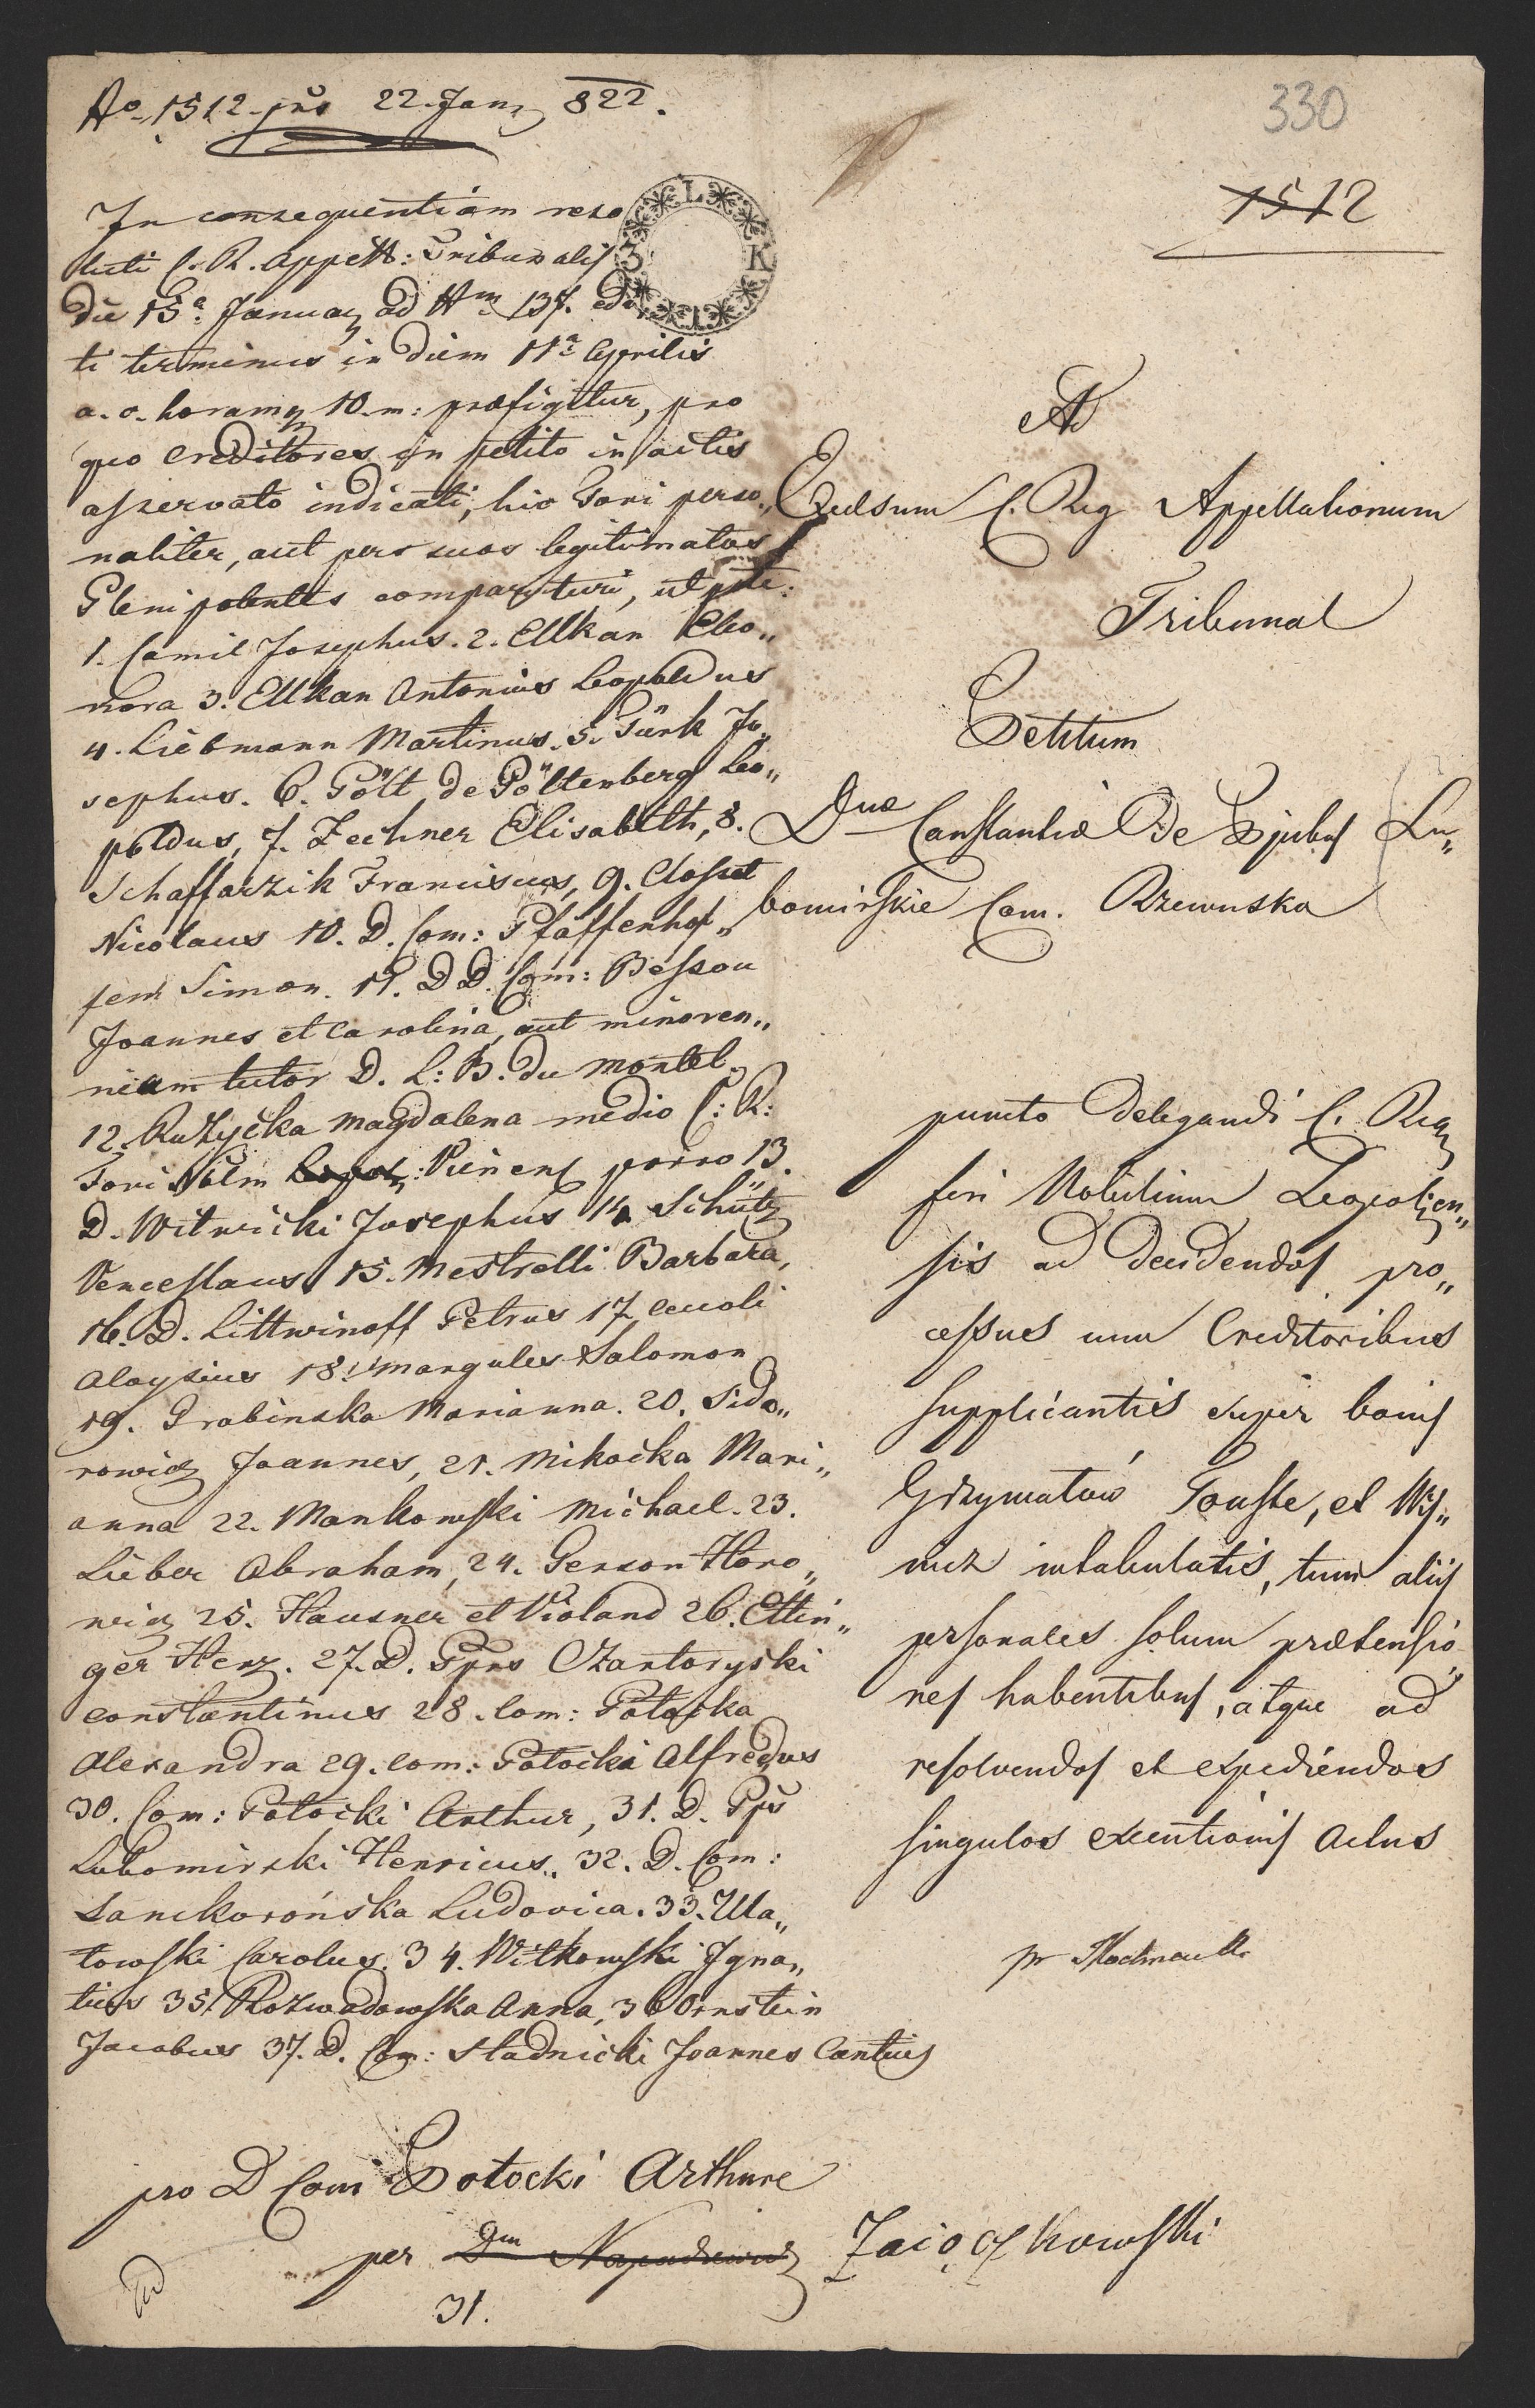 No. 1512. prs 22. Jan. 822.
In consequentiam reso
luti C. R. Appell: Tribunalis
die 15a Januar ad Nm 137. edi
ti terminus in diem 11a Aprilis
a. c. horamq 10. m: præfigitur, pro
quo Creditores in petito in actis
asservato indicati, hic Fori perso„
naliter, aut per suos legitimatos
Plenipotentes comparituri, ut pote:
1. Camil Josephus. 2. Ellkan Eleo„
nora 3. Ellkan Antonius Leopoldus
4. Liebmann Martinus. 5. Türk Jo„
sephus. 6. Pölt de Pöltenberg Leo„
poldus, 7. Zechner Elisabeth, 8.
Schaffarzik Franciscus, 9. Closset
Nicolaus 10. D. Com: Pfaffenhof„
fen Simon. 11. D D. Com: Besson
Joannes et Carolina, aut minoren„
nium tutor D. L: B. du Montel.
12. Rużyčka Magdalena medio C: R:
Fori Nblm Viennens porro 13.
D. Witwicki Josephus 14 Schütz
Venceslaus 15. Mestrelli Barbara,
16. D. Littwinoff Petrus 17 Ceuoli
Aloysius 18. Margules Salomon
19. Grabinska Marianna. 20. Sido„
rowicz Joannes, 21. Mikocka Mari„
anna 22. Mankowski Michael. 23.
Lieber Abraham, 24. Gerson Horo„
witz 25. Hausner et Violand 26. Ettin„
ger Herz. 27. D. Ppns Czartoryski
Constantinus 28. Com: Potocka
Alexandra 29. Com: Potocki Alfredus
30. Com: Potocki Arthur, 31. D. Pps
Lubomirski Henricus. 32. D. Com:
Lanckorońska Ludovica. 33. Ula„
towski Carolus. 34. Witkowski Igna„
tius 35. Rozwadowska Anna, 36 Ornstein
Jacobus 37. D. Com: Stadnicki Joannes Cantius
pro D Com Potocki Arthure
per Dm Zajączkowski
31.
330
1512
L
3 K
Ad
Excelsum C. Reg Appellationum
Tribunal
Petitum
Dnæ Constantiæ De Ppibus Lu„
bomirskie Com. Rzewuska
puncto Delegandi C. Reg
fori Nobilium Leopolien„
sis ad decidendos pro„
cessus cum Creditoribus
supplicantis super bonis
Grzymałów Touste, et Wis„
nicz intabulatis, tum aliis
personales solum prætensio„
nes habentibus, atque ad
resolvendos et expediendos
singulos executionis Actus